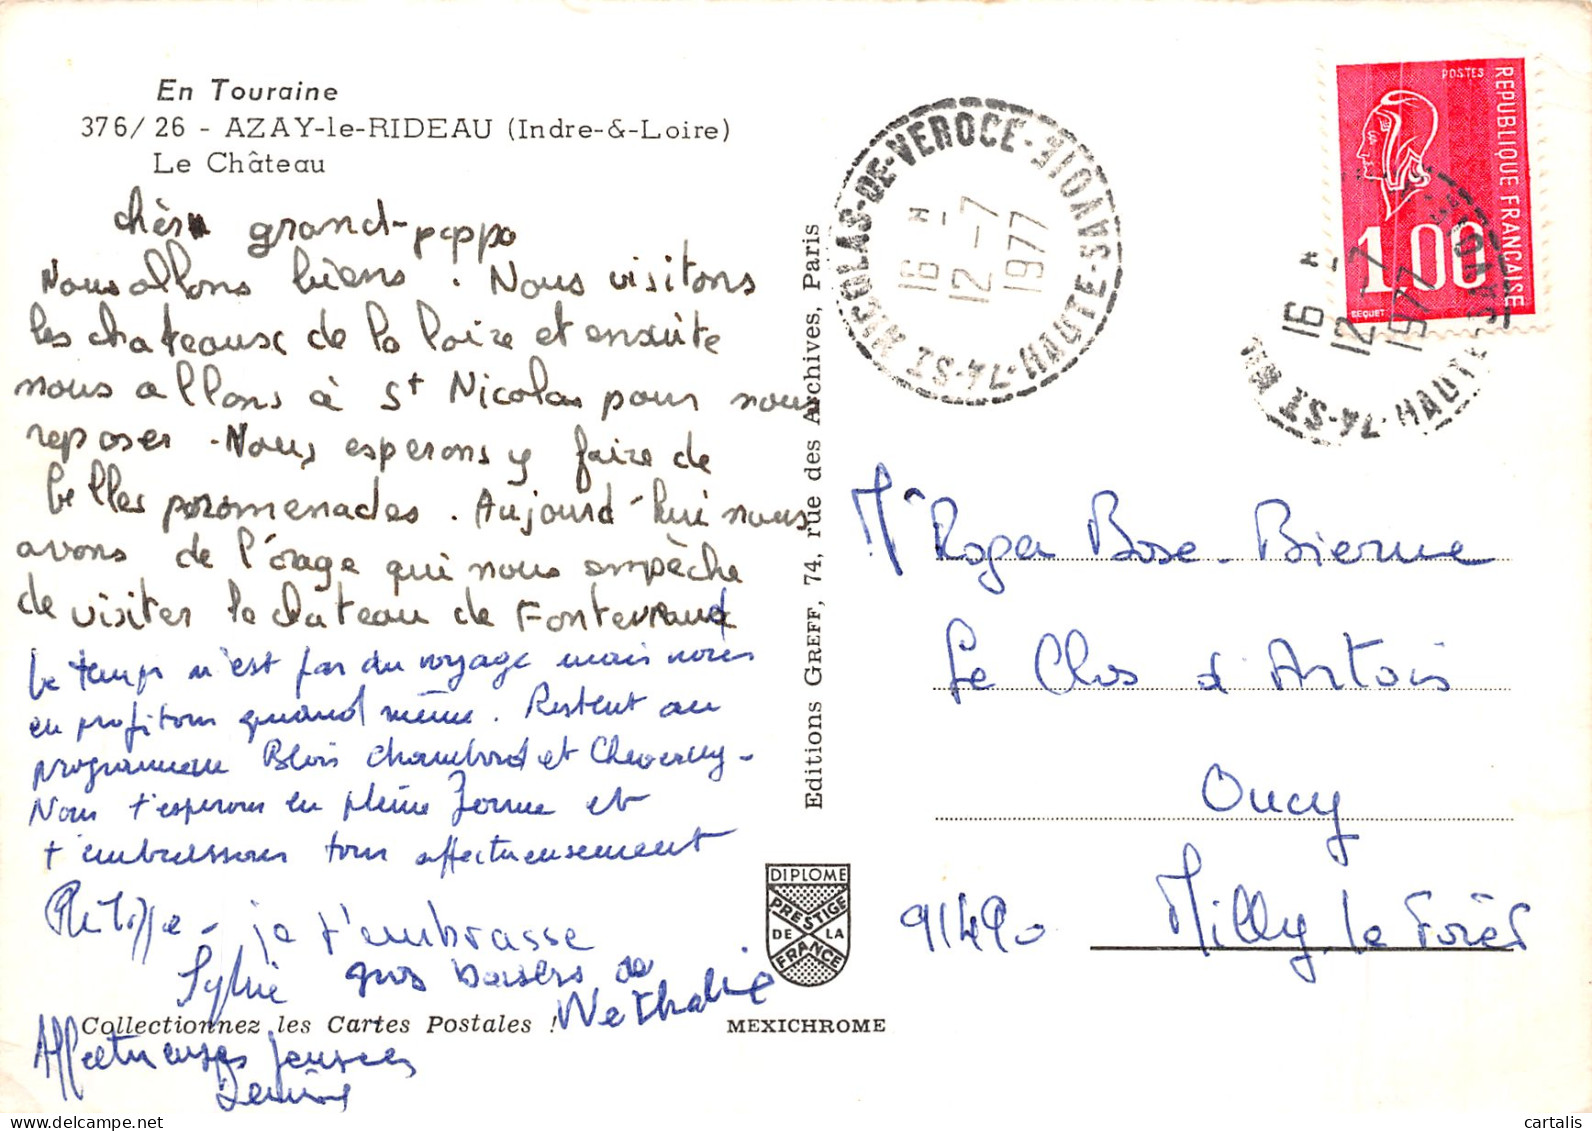 En Touraine
376/26 - AZAY-le-RIDEAU (Indre-&-Loire)
Le Château
chèr grand-pappo
Nous allons biens. Nous visitons
les chateaux de la loire et ensuite
nous allons à St Nicolas pour nous
reposer. Nous esperons y faire de
belles poromenades. Aujourd'hui nous
avons de l'orage qui nous empèche
de visiter le chateau de Fontevraud
Le temps n'est pas du voyage mais nous
en profitons quand même. Restent au
programme Blois Chambord et Cheverny -
Nous t'esperons en pleine forme et
t'embrassons tous affectueusement
Philippe - je t'embrasse
Sylvie gros baisers de
Nathalie
Affectueuses pensées
Collectionnez les Cartes Postales !
MEXICHROME
DIPLOME
PRESTIGE
DE LA
FRANCE
Editions GREFF, 74, rue des Archives, Paris
74-ST NICOLAS-DE-VEROCE-HAUTE-SAVOIE
16 H
12-7
1977
REPUBLIQUE FRANÇAISE
POSTES
1,00
BEQUET
74-ST NI HAUTE-SAVOIE
16 H
12-7
1977
Mr Roger Bose-Bierne
Le Clos d'Artois
Oncy
91490 Milly-la Forêt
cartalis